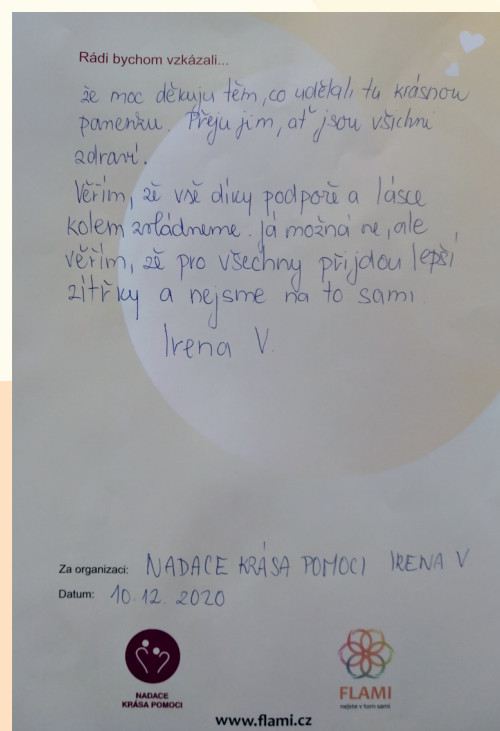 Rádi bychom vzkázali...
že moc děkuju těm, co udělali tu krásnou
panenku. Přeju jim, ať jsou všichni
zdraví.
Věřím, že vše díky podpoře a lásce
kolem zvládneme. Já možná ne, ale
věřím, že pro všechny přijdou lepší
zítřky a nejsme na to sami.
Irena V.
Za organizaci: NADACE KRÁSA POMOCI IRENA V
Datum: 10.12. 2020
NADACE
KRÁSA POMOCI
FLAMI
nejste v tom sami
www.flami.cz